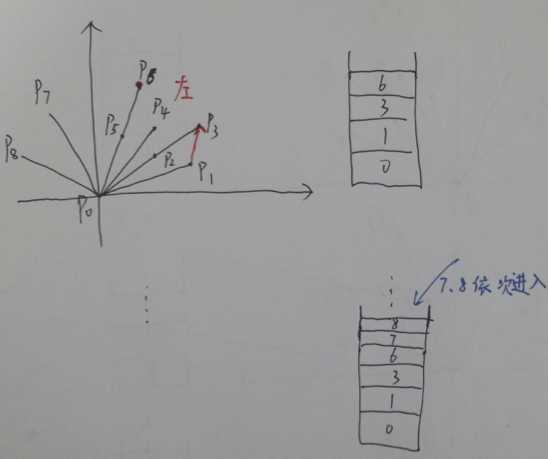 P6
左
P7
P4
P5
P3
P8
P2
P1
P0
6
3
1
0
7.8依次进入
8
7
6
3
1
0